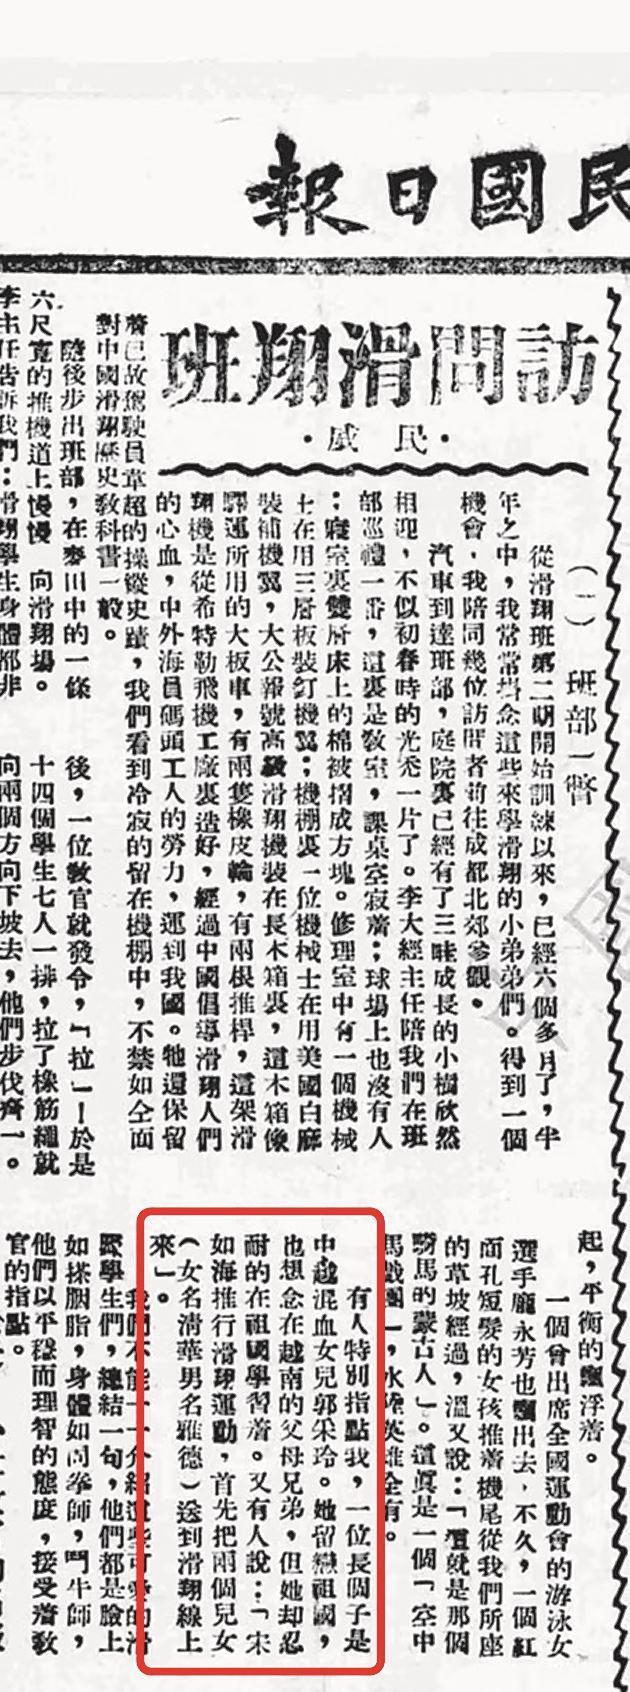 民國日報
訪問滑翔班
·民威·
(一) 班部一瞥
從滑翔班第二期開始訓練以來,已經六個多月了,半
年之中,我常常掛念這些來學滑翔的小弟弟們。得到一個
機會,我陪同幾位訪問者前往成都北郊參觀。
汽車到達班部,庭院裏已經有了三畦成長的小樹欣然
相迎,不似初春時的光禿一片了。李大經主任陪我們在班
部巡禮一番,這裏是教室,課桌空寂着;球場上也沒有人
;寢室裏雙層床上的棉被摺成方塊。修理室中有一個機械
士在用三層板裝釘機翼;機棚裏一位機械士在用美國白麻
裝補機翼,大公報號高級滑翔機裝在長木箱裏,這木箱像
驛運所用的大板車,有兩隻橡皮輪,有兩根推桿,這架滑
翔機是從希特勒飛機工廠裏造好,經過中國倡導滑翔人們
的心血,中外海員碼頭工人的勞力,運到我國。牠還保留
着已故駕駛員韋超的操縱史蹟,我們看到冷寂的留在機棚中,不禁如全面
對中國滑翔歷史教科書一般。
隨後步出班部,在麥田中的一條
六尺寬的推機道上慢慢 向滑翔場。
李主任告訴我們:滑翔學生身體都非
後,一位教官就發令,「拉」!於是
十四個學生七人一排,拉了橡筋繩就
向兩個方向下坡去,他們步伐齊一。
起,平衡的飄浮着。
一個曾出席全國運動會的游泳女
選手龐永芳也飄出去,不久,一個紅
面孔短髮的女孩推着機尾從我們所座
的草坡經過,溫又說:「這就是那個
騎馬的蒙古人」。這真是一個「空中
馬戲團」,水陸英雄全有。
有人特別指點我,一位長個子是
中越混血女兒郭采玲。她留戀祖國,
也想念在越南的父母兄弟,但她却忍
耐的在祖國學習着。又有人說:「宋
如海推行滑翔運動,首先把兩個兒女
(女名清華男名雅德)送到滑翔線上
來」。
我們不能一一介紹這些可愛的滑
翠學生們,總結一句,他們都是臉上
如搽胭脂,身體如同拳師,鬥牛師,
他們以平穩而理智的態度,接受着教
官的指點。